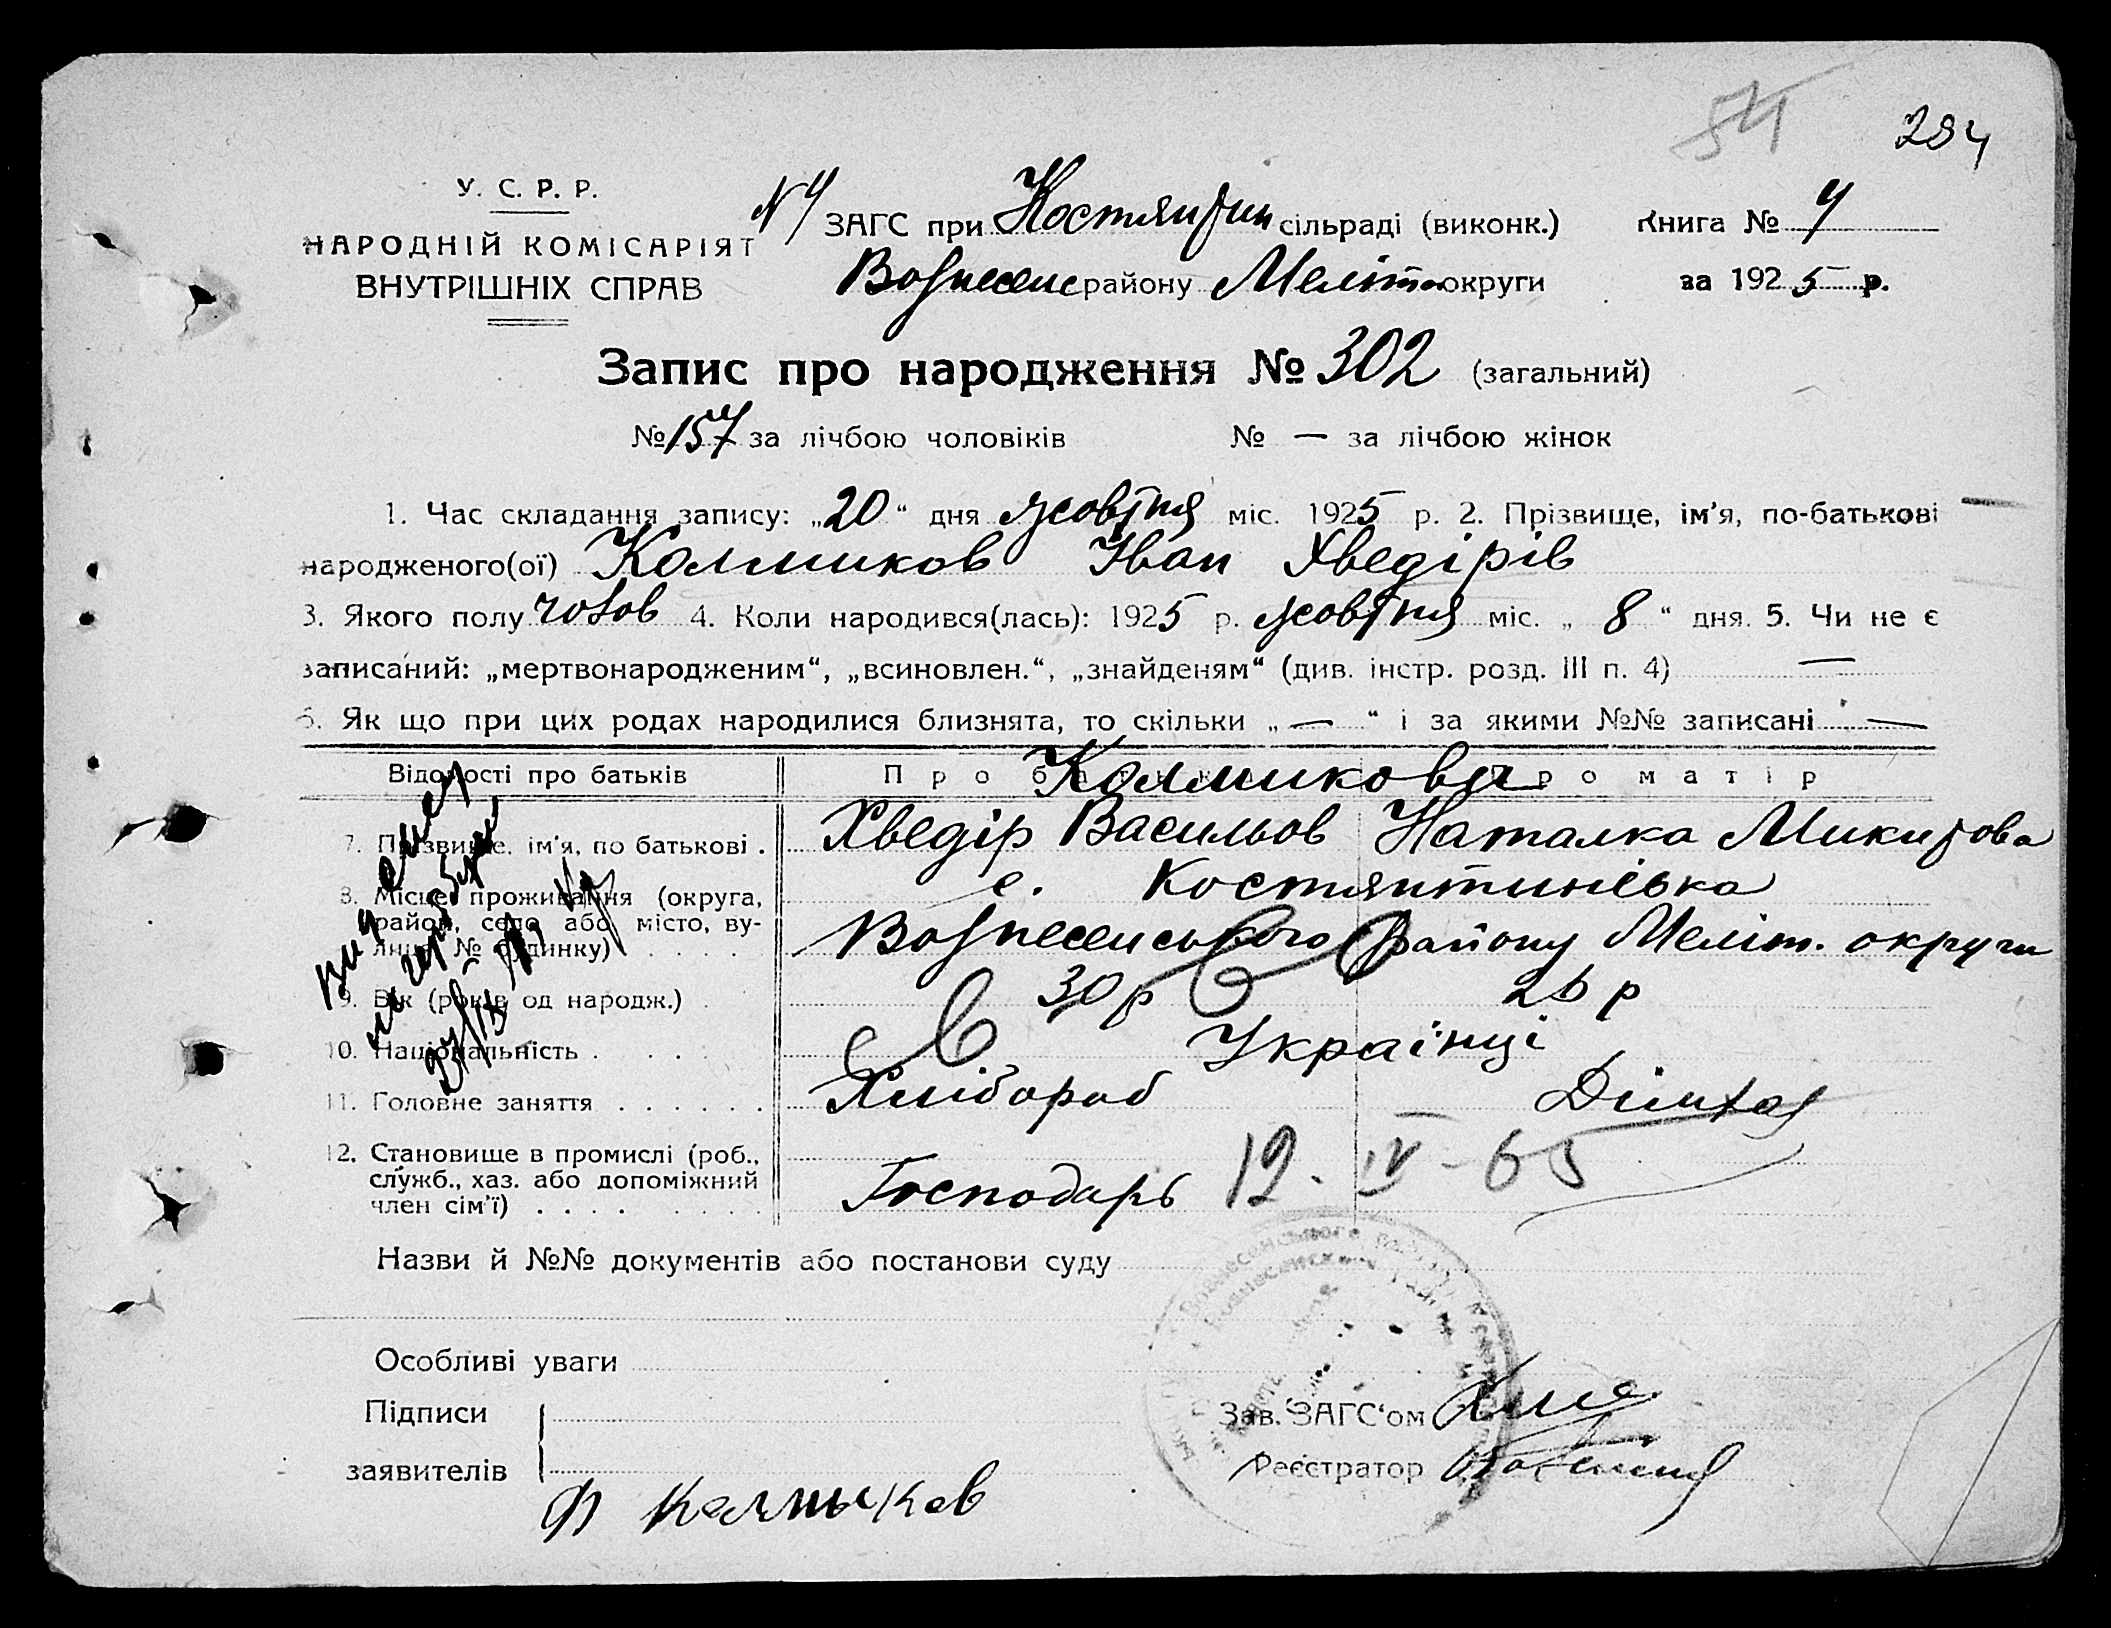 54 284
У. С. Р. Р.
НАРОДНІЙ КОМІСАРІЯТ
ВНУТРІШНІХ СПРАВ
№ 4 ЗАГС при Костянтин сільраді (виконк.) Книга № 4
Вознесенс району Меліт округи за 1925 р.
Запис про народження № 302 (загальний)
№ 157 за лічбою чоловіків № — за лічбою жінок
1. Час складання запису: „20“ дня жовтня міс. 1925 р. 2. Прізвище, ім’я, по-батькові
народженого(ої) Колмиков Іван Хведірів
3. Якого полу чолов 4. Коли народився(лась): 1925 р. жовтня міс. „ 8 “ дня. 5. Чи не є
записаний: „мертвонародженим“, „всиновлен.“, „знайденям“ (див. інстр. розд. III п. 4) —
6. Як що при цих родах народилися близнята, то скільки „ — “ і за якими №№ записані —
Відомості про батьків Про батька Про матір
Колмикови
7. Прізвище, ім’я, по батькові . Хведір Васильов Наталка Микитова
8. Місце проживання (округа, с. Костянтинівка
район, село або місто, ву-
лиця, № будинку) . . . . Вознесенського району Меліт. округи
9. Вік (років од народж.) . 30 р 26 р
10. Національність . . . . Українці
11. Головне заняття . . . . . . Хлібороб Дімхаз
12. Становище в промислі (роб.,
служб., хаз. або допоміжний
член сім’ї) . . . . . . . . Господарь 12. IV - 65
Назви й №№ документів або постанови суду
Особливі уваги
Підписи Зав. ЗАГС‘ом
заявителів Реєстратор
Ф Калмыков